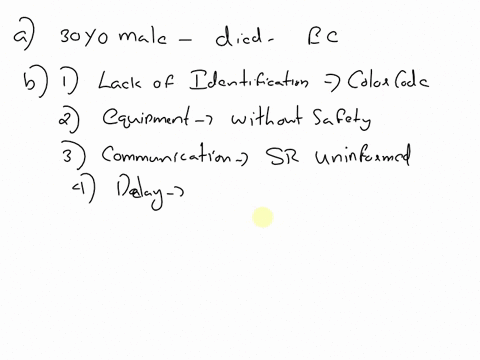 a) 30 yo male - died - EC
b) 1) Lack of Identification → Color Code
2) Equipment → without Safety
3) Communication → SR uninformed
4) Delay →